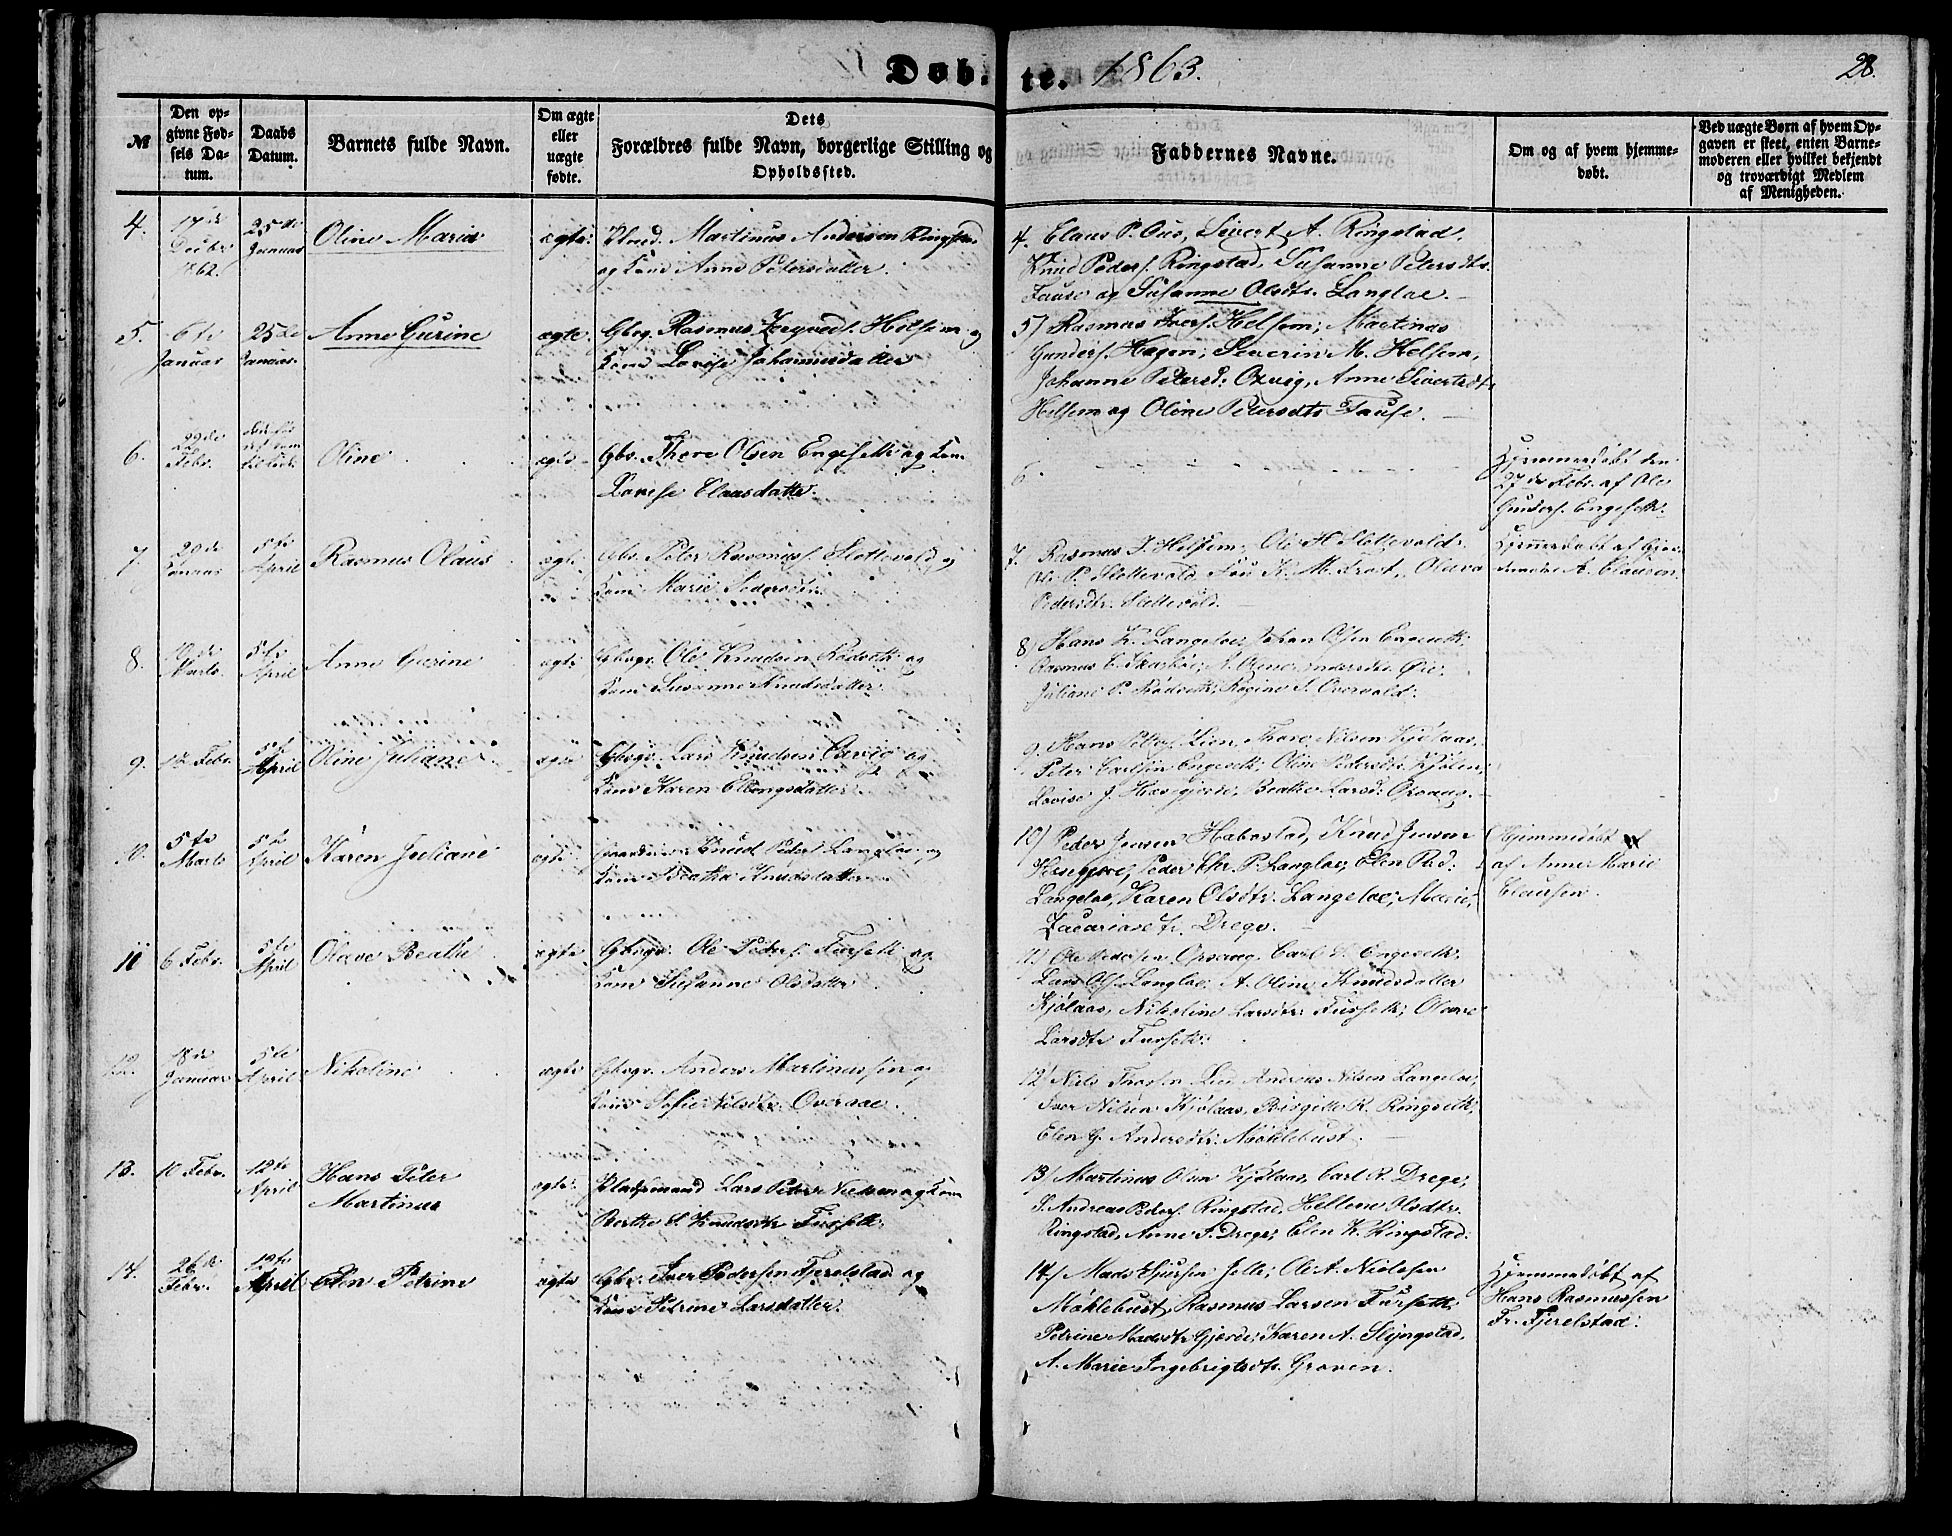 Døb-
te. 1863.
28.
№
Den op-
givne Fød-
sels Da-
tum.
Daabs
Datum.
Barnets fulde Navn.
Om ægte
eller
uægte
fødte.
Dets
Forældres fulde Navn, borgerlige Stilling og
Opholdssted.
Faddernes Navne.
Om og af hvem hjemme-
døbt.
Ved uægte Børn af hvem Op-
gaven er skeet, enten Barne-
moderen eller hvilket bekjendt
og troværdigt Medlem
af Menigheden.
4.
17de
Decbr
1862.
25de
Januar
Oline Maria
ægte
Martinus Andersen Ringstad
og Kone Anne Petersdatter.
4. Claus P. Ous, Sivert A. Ringstad,
Knud Peders. Ringstad, Susanne Petersdtr.
Fause og Susanne Olsdtr. Langloe.
5.
6te
Januar
25de
Januar
Anne Gurine
ægte
Gbrg. Rasmus Helsem og
Kone Lovise Johannesdatter
5) Rasmus Ivers. Helsem; Martinus
Gunders. Hagen; Severin M. Helsem,
Johanne Petersd: Oxvig, Anne Sivertsdtr
Helsem og Oline Petersdtr Fause.
6.
22de
Febr.
Oline
ægte
Gbr. Thore Olsen Engeseth og Kone
Lovise Clausdatter.
6
Hjemmedøbt den
27de Febr. af Ole
Gunders. Engeseth.
7.
29de
Januar
5te
April
Rasmus Olaus
ægte
Gbr. Peter Rasmuss. Slettevold og
Kone Marie Pedersdtr.
7. Rasmus I. Helsem, Ole H. Slettevold,
Ole P. Slettevold, K. M. Frost, Olava
Pedersdtr. Slettevold.
Hjemmedøbt af Gjor-
demoder A. Clausen.
8.
Marts.
5te
April
Anne Gurine
ægte
Gbrgr. Ole Knudsen Rødseth og
Kone Susanne Knudsdatter.
8) Hans K. Langeloe, Johan Olsen Engeseth
Rasmus E. Skarbøe; A. Andersdtr. Øie,
Juliane P. Rødseth, Regine S. Overvold.
9.
Febr.
5te
April
Oline Juliane
ægte
Gbrgr. Lars Knudsen Oxvig og
Kone Karen Ellingsdatter.
9. Hans Peters. Lien, Thore Nilsen Kjølaas,
Peter Carlsen Engeseth; Oline Pedersdtr. Kjølen;
Lovise J. Hasegjerde, Beathe Larsd: Orvaag.
10.
5te
Marts
5te
April
Karen Juliane
ægte
Knud Peders. Langloe og
Kone Beathe Knudsdatter.
10) Peder Jensen Habostad, Knud Jensen
Hasegjere; Peder Chr. P. Langloe, Elen Ped:
Langeloe, Karen Olsdtr. Langeloe; Marie
Zacariasdtr. Drege.
Hjemmedøbt
af Anne Marie
Clausen.
11
6 Febr.
5te
April
Olave Beathe
ægte
Gbrgr. Ole Peders. Furseth og
Kone Susanne Olsdatter
11) Ole Pedersen Orvaag, Carl E. Engeseth,
Lars Ols. Langloe; A. Oline Knudsdatter
Kjølaas, Nikoline Larsdtr. Furseth; Olave
Larsdtr Furseth.
12.
18de
Januar
5te
April
Nikoline
ægte
Gbrgr. Anders Martinussen og
Kone Sofie Nilsdtr. Overaae.
12) Niels Thores. Lien, Andreas Nilsen Langeloe,
Iver Nilsen Kjølaas, Birgitte R. Ringseth,
Elen G. Andersdtr. Møklebust.
13.
10 Febr.
12te
April
Hans Peter
Martinus
ægte
Pladsmand Lars Peter Nielsen og Kone
Berthe S. Knudsdtr Furseth.
13) Martinus Olsen Kjølaas, Carl R. Drege,
S. Andreas Peders. Ringstad, Hellene Olsdtr.
Ringstad, Anne S. Drege; Elen K. Ringstad.
14.
26de
Febr.
12te
April
Elen Petrine
ægte
Gbr. Iver Pedersen Fjerelstad og
Kone Petrine Larsdatter.
14) Mads Sjursen Jelle; Ole A. Nielsen
Møklebust, Rasmus Larsen Furseth,
Petrine Madsdtr Gjerde; Karen A. Slyngstad,
A. Marie Ingebrigtsdtr. Groven.
Hjemmedøbt af
Hans Rasmussen
Fr. Fjerelstad.